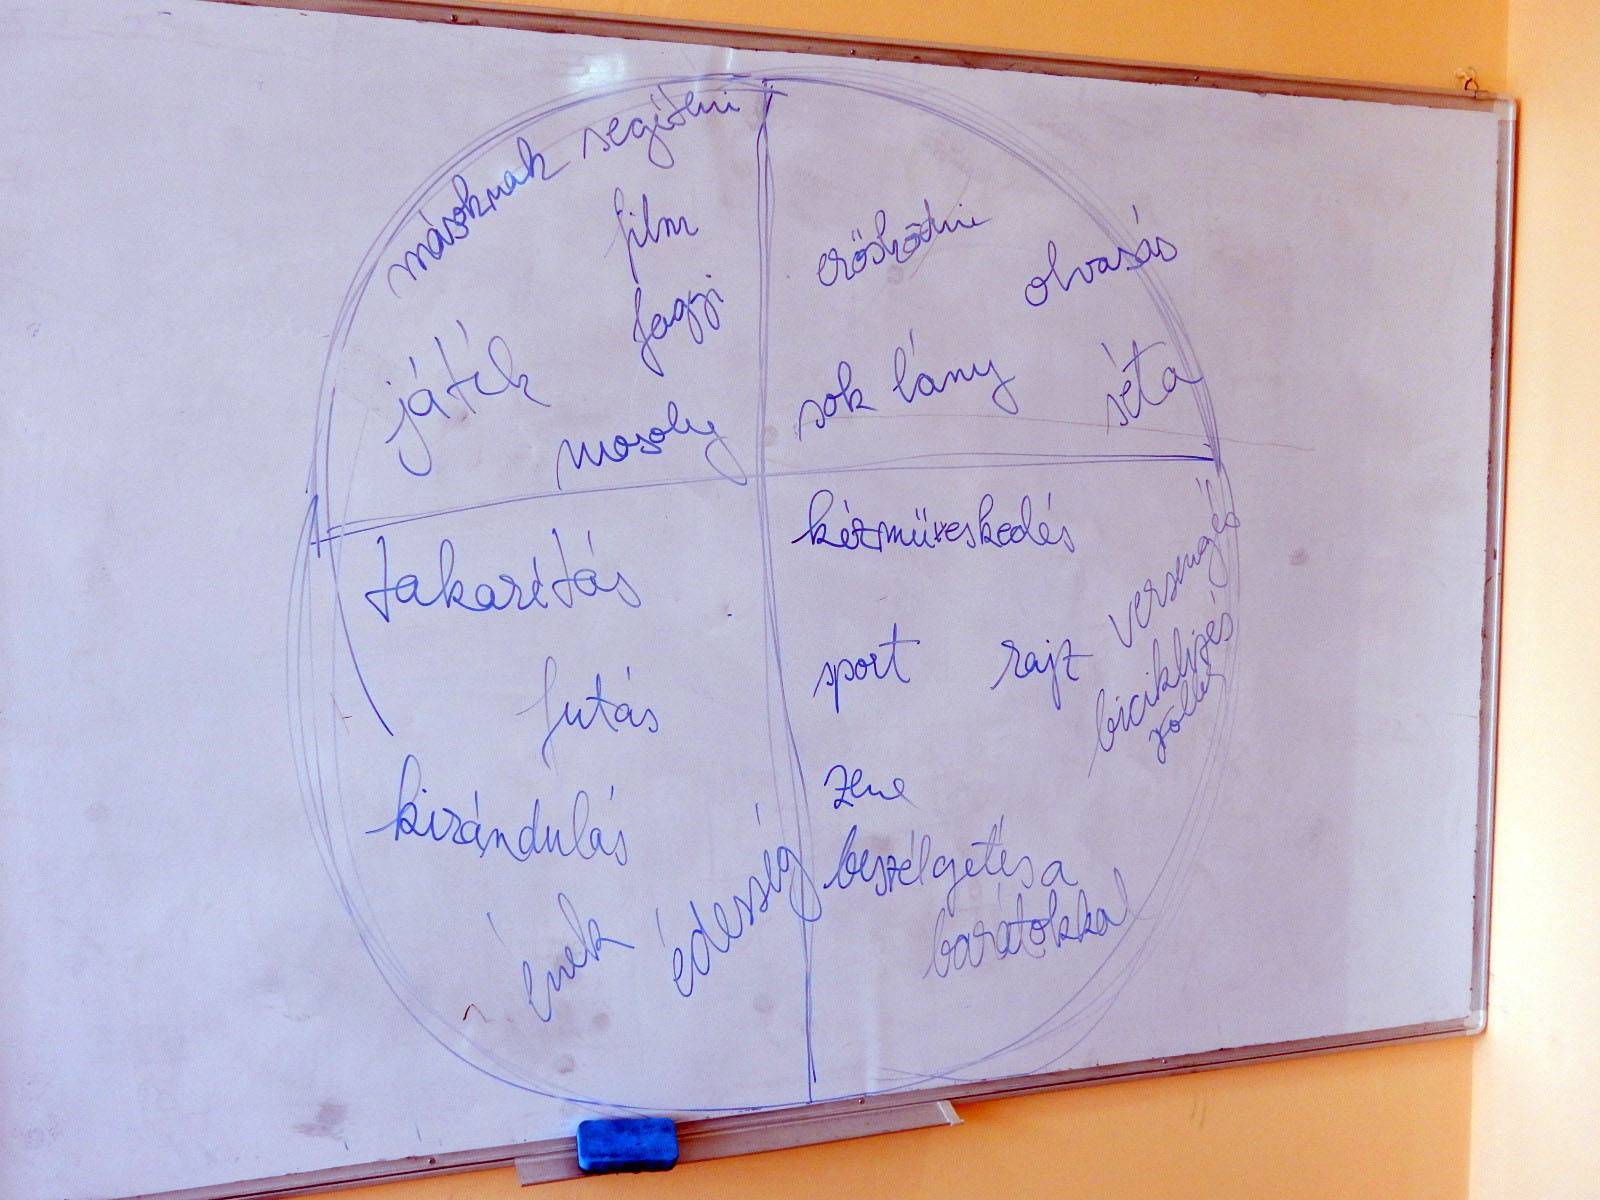 másoknak segíteni
film
fagyi
játék
mosoly
erősködni
olvasás
sok lány
séta
takarítás
futás
kirándulás
ének
édesség
kézműveskedés
versengés
sport
rajz
biciklizés
zene
beszélgetés a
barátokkal